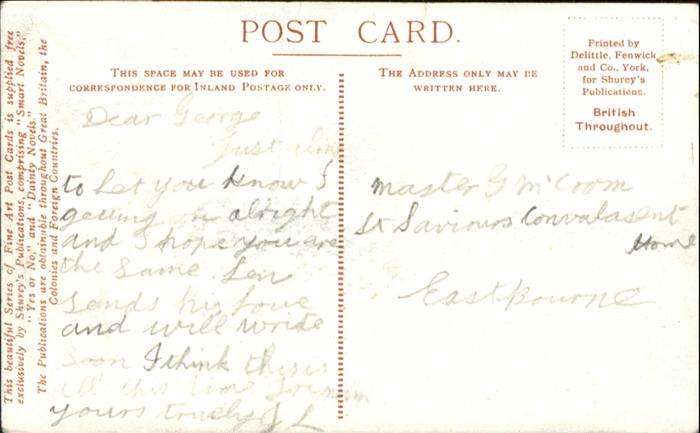 POST CARD.
THIS SPACE MAY BE USED FOR
CORRESPONDENCE FOR INLAND POSTAGE ONLY.
THE ADDRESS ONLY MAY BE
WRITTEN HERE.
Printed by
Delittle, Fenwick
and Co., York,
for Shurey's
Publications.
British
Throughout.
This beautiful Series of Fine Art Post Cards is supplied free
exclusively by Shurey's Publications, comprising "Smart Novels,"
"Yes or No," and "Dainty Novels."
The Publications are obtainable throughout Great Britain, the
Colonies and Foreign Countries.
Dear George
Just a line
to let you know I
getting on alright
and I hope you are
the same Len
sends his love
and will write
soon I think this is
all this time I remain
yours truely J L
Master G McCoom
St Saviours Convalasent
Home
Eastbourne